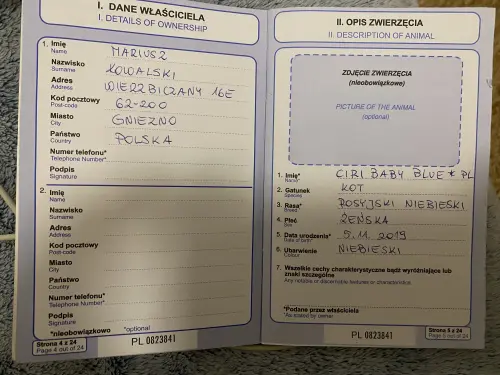 I. DANE WŁAŚCICIELA
I. DETAILS OF OWNERSHIP
1. Imię MARIUSZ
Name
Nazwisko KOWALSKI
Surname
Adres WIERZBICZANY 16E
Address
Kod pocztowy 62-200
Post-code
Miasto GNIEZNO
City
Państwo POLSKA
Country
Numer telefonu*
Telephone Number*
Podpis
Signature
2. Imię
Name
Nazwisko
Surname
Adres
Address
Kod pocztowy
Post-code
Miasto
City
Państwo
Country
Numer telefonu*
Telephone Number*
Podpis
Signature
*nieobowiązkowo *optional
Strona 4 z 24
Page 4 out of 24
PL 0823841
II. OPIS ZWIERZĘCIA
II. DESCRIPTION OF ANIMAL
ZDJĘCIE ZWIERZĘCIA
(nieobowiązkowe)
PICTURE OF THE ANIMAL
(optional)
1. Imię* CIRI BABY BLUE * PL
Name*
2. Gatunek KOT
Species
3. Rasa* ROSYJSKI NIEBIESKI
Breed
4. Płeć ŻEŃSKA
Sex
5. Data urodzenia* 5.11.2019
Date of birth*
6. Ubarwienie NIEBIESKI
Colour
7. Wszelkie cechy charakterystyczne bądź wyróżniające lub
znaki szczególne
Any notable or discernable features or characteristics
*Podane przez właściciela
*As stated by owner
PL 0823841
Strona 5 z 24
Page 5 out of 24